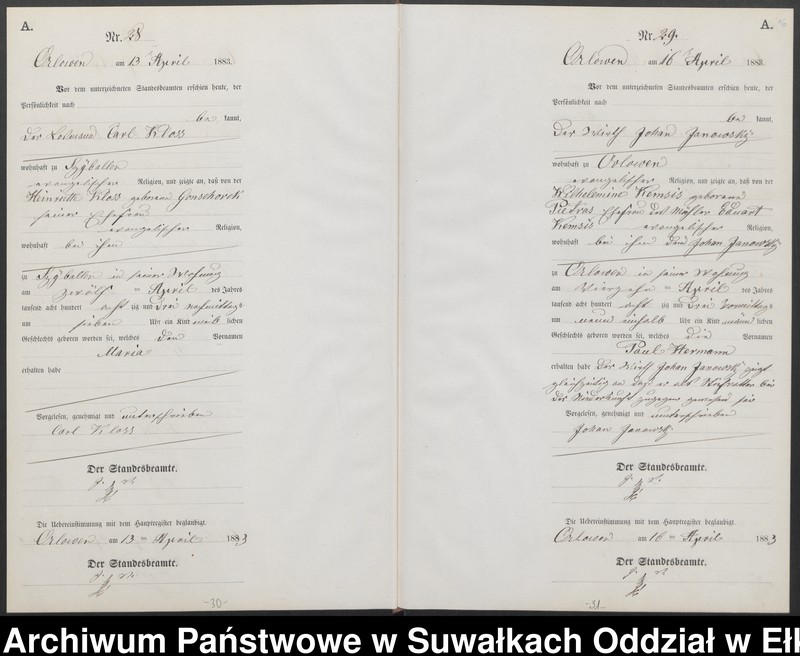 A.
Nr. 28
Orlowen am 13 April 1883.
Vor dem unterzeichneten Standesbeamten erschien heute, der
Persönlichkeit nach
be kannt,
der Carl Kloss
wohnhaft zu
evangelischer Religion, und zeigte an, daß von der
Heinriette Kloss geborene Gonschorek
seiner Ehefrau
evangelischer Religion,
wohnhaft bei ihm
zu in seiner Wohnung
am zwölften April des Jahres
tausend acht hundert acht zig und drei nachmittags
um sieben Uhr ein Kind weib lichen
Geschlechts geboren worden sei, welches den Vornamen
Maria
erhalten habe
Vorgelesen, genehmigt und unterschrieben
Carl Kloss
Der Standesbeamte.
Die Uebereinstimmung mit dem Hauptregister beglaubigt.
Orlowen am 13 ten April 1883
Der Standesbeamte.
-30-
A.
Nr. 29.
Orlowen am 16 April 1883.
Vor dem unterzeichneten Standesbeamten erschien heute, der
Persönlichkeit nach
be kannt,
der Wirth Johan Janowsky
wohnhaft zu Orlowen
evangelischer Religion, und zeigte an, daß von der
Wilhelmine Kemsis geborene
Piedras Ehefrau des Eduart
Kemsis evangelischer Religion,
wohnhaft bei ihm dem Johan Janowsky
zu Orlowen in seiner Wohnung
am Vierzehn ten April des Jahres
tausend acht hundert acht zig und drei Vormittags
um neun einhalb Uhr ein Kind männ lichen
Geschlechts geboren worden sei, welches die Vornamen
Paul Hermann
erhalten habe Der Wirth Johan Janowsky zeigt
gleichzeitig an daß er
der Niederkunft zugegen gewesen sei
Vorgelesen, genehmigt und unterschrieben
Johan Janowsky
Der Standesbeamte.
Die Uebereinstimmung mit dem Hauptregister beglaubigt.
Orlowen am 16 ten April 1883
Der Standesbeamte.
-31-
Archiwum Państwowe w Suwałkach Oddział w Ełk